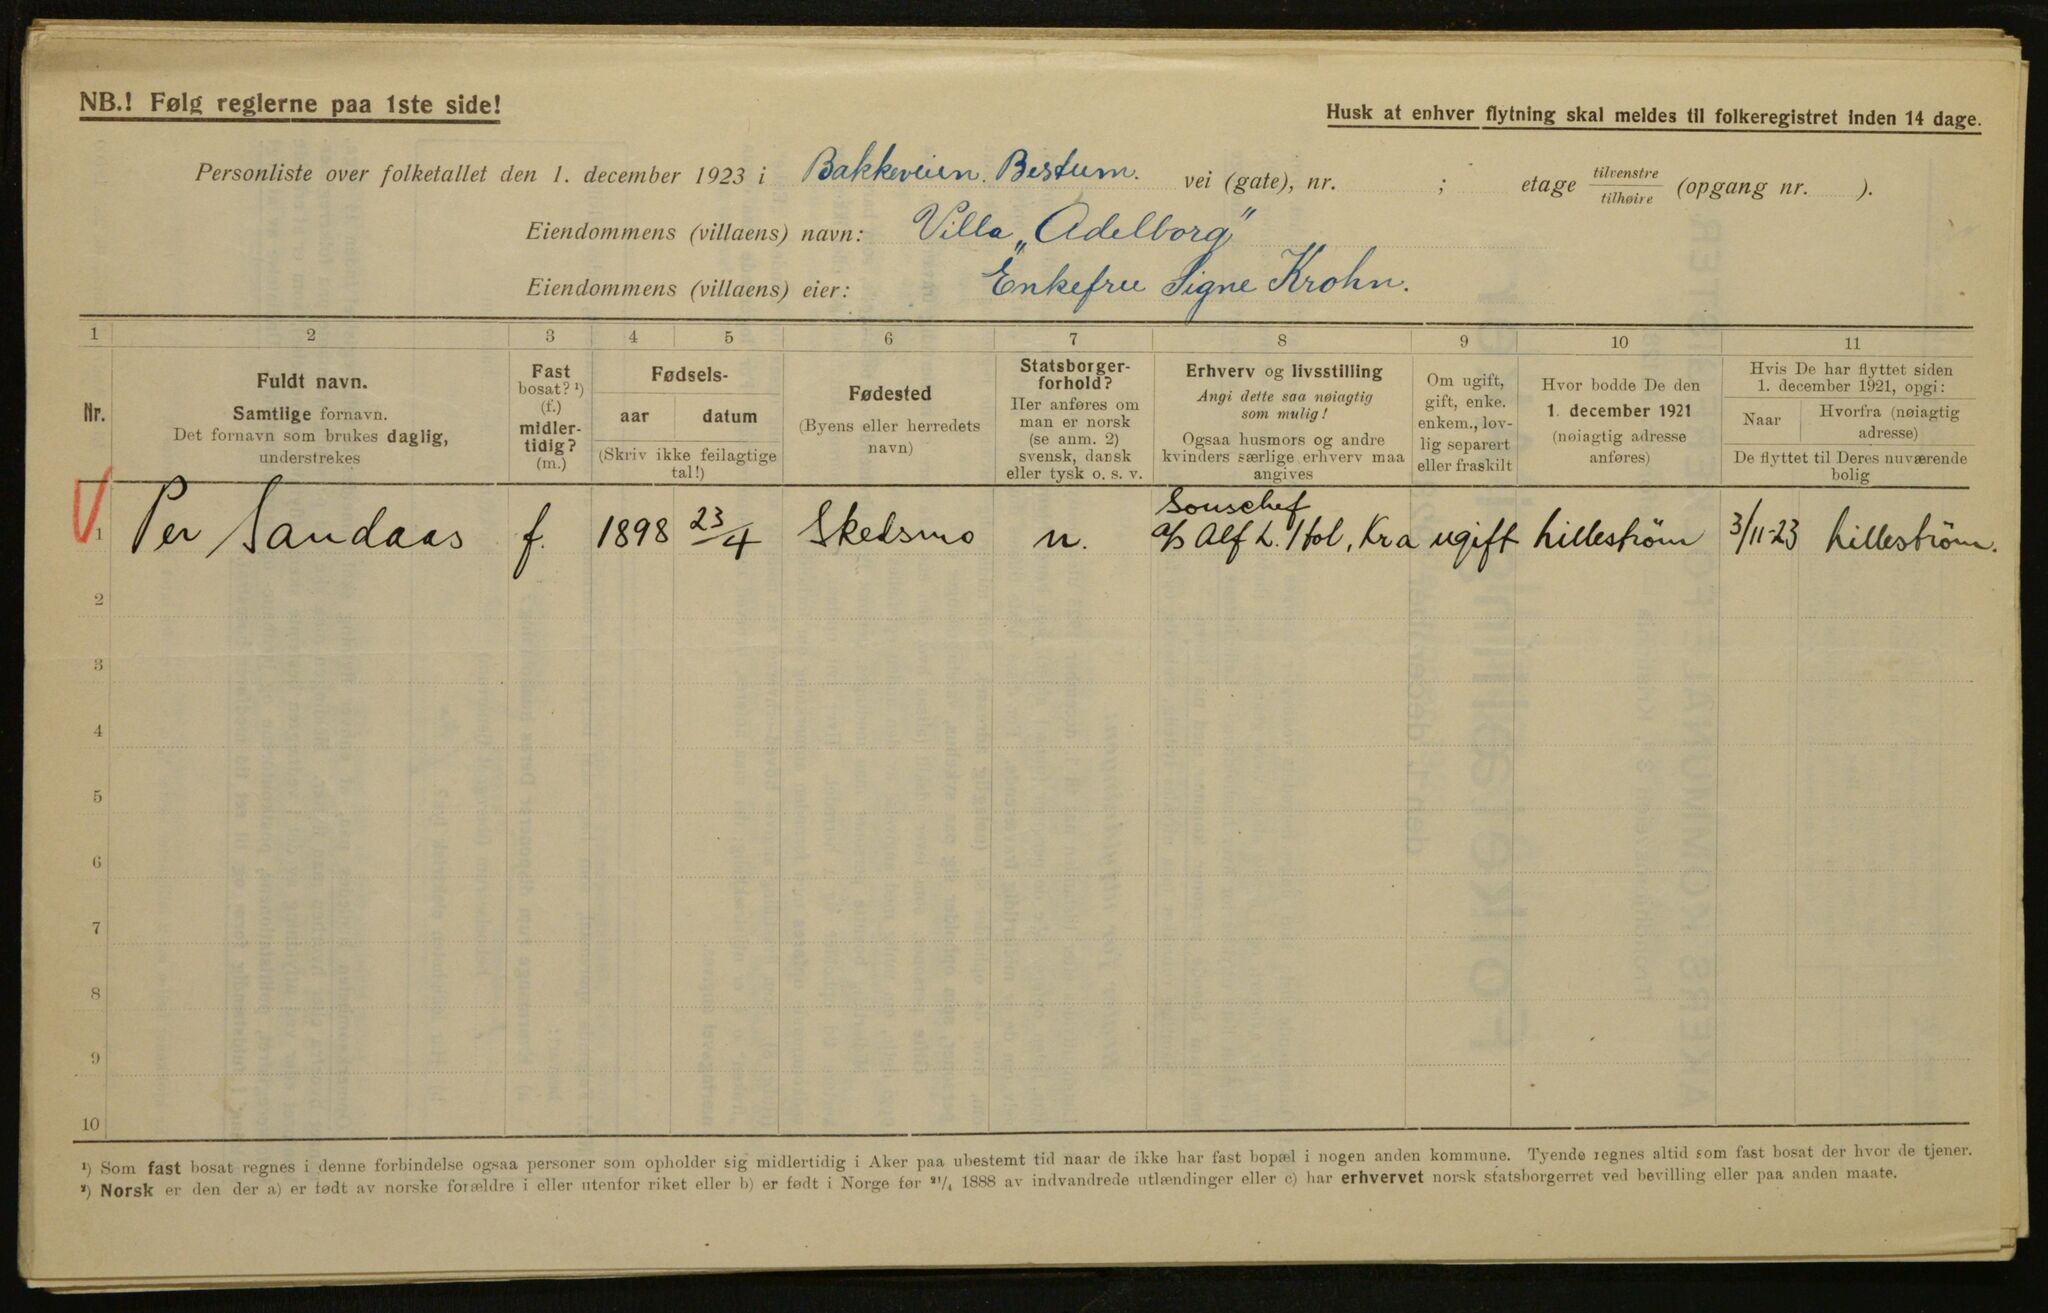 NB.! Følg reglerne paa 1ste side!
Husk at enhver flytning skal meldes til folkeregistret inden 14 dage.
Personliste over folketallet den 1. december 1923 i Bakkeveien. Bestum. vei (gate), nr. ; etage tilvenstre/tilhøire (opgang nr. ).
Eiendommens (villaens) navn: Villa „Adelborg"
Eiendommens (villaens) eier: Enkefru Signe Krohn.
1 2 3 4 5 6 7 8 9 10 11
Nr.
Fuldt navn.
Samtlige fornavn.
Det fornavn som brukes daglig,
understrekes
Fast
bosat? ¹)
(f.)
midler-
tidig?
(m.)
Fødsels-
aar datum
(Skriv ikke feilagtige
tal!)
Fødested
(Byens eller herredets
navn)
Statsborger-
forhold?
Her anføres om
man er norsk
(se anm. 2)
svensk, dansk
eller tysk o. s. v.
Erhverv og livsstilling
Angi dette saa nøiagtig
som mulig!
Ogsaa husmors og andre
kvinders særlige erhverv maa
angives
Om ugift,
gift, enke.
enkem., lov-
lig separert
eller fraskilt
Hvor bodde De den
1. december 1921
(nøiagtig adresse
anføres)
Hvis De har flyttet siden
1. december 1921, opgi:
Naar
Hvorfra (nøiagtig
adresse)
De flyttet til Deres nuværende
bolig
Souschef
1 Per Sandaas f. 1898 23/4 Skedsmo n. a/s Alf L. , Kra ugift Lillestrøm 3/11-23 Lillestrøm.
2
3
4
5
6
7
8
9
10
¹) Som fast bosat regnes i denne forbindelse ogsaa personer som opholder sig midlertidig i Aker paa ubestemt tid naar de ikke har fast bopæl i nogen anden kommune. Tyende regnes altid som fast bosat der hvor de tjener.
²) Norsk er den der a) er født av norske forældre i eller utenfor riket eller b) er født i Norge før ²¹/₄ 1888 av indvandrede utlændinger eller c) har erhvervet norsk statsborgerret ved bevilling eller paa anden maate.